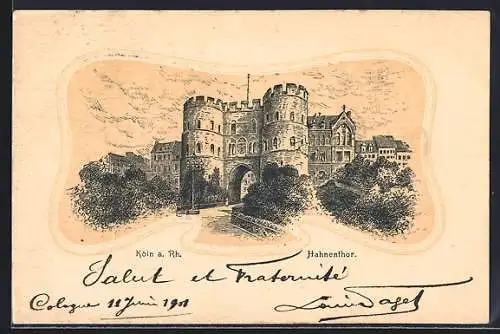 Köln a. Rh. Hahnenthor.
Salut et Fraternité
Cologne 11 Juin 1901 Louis